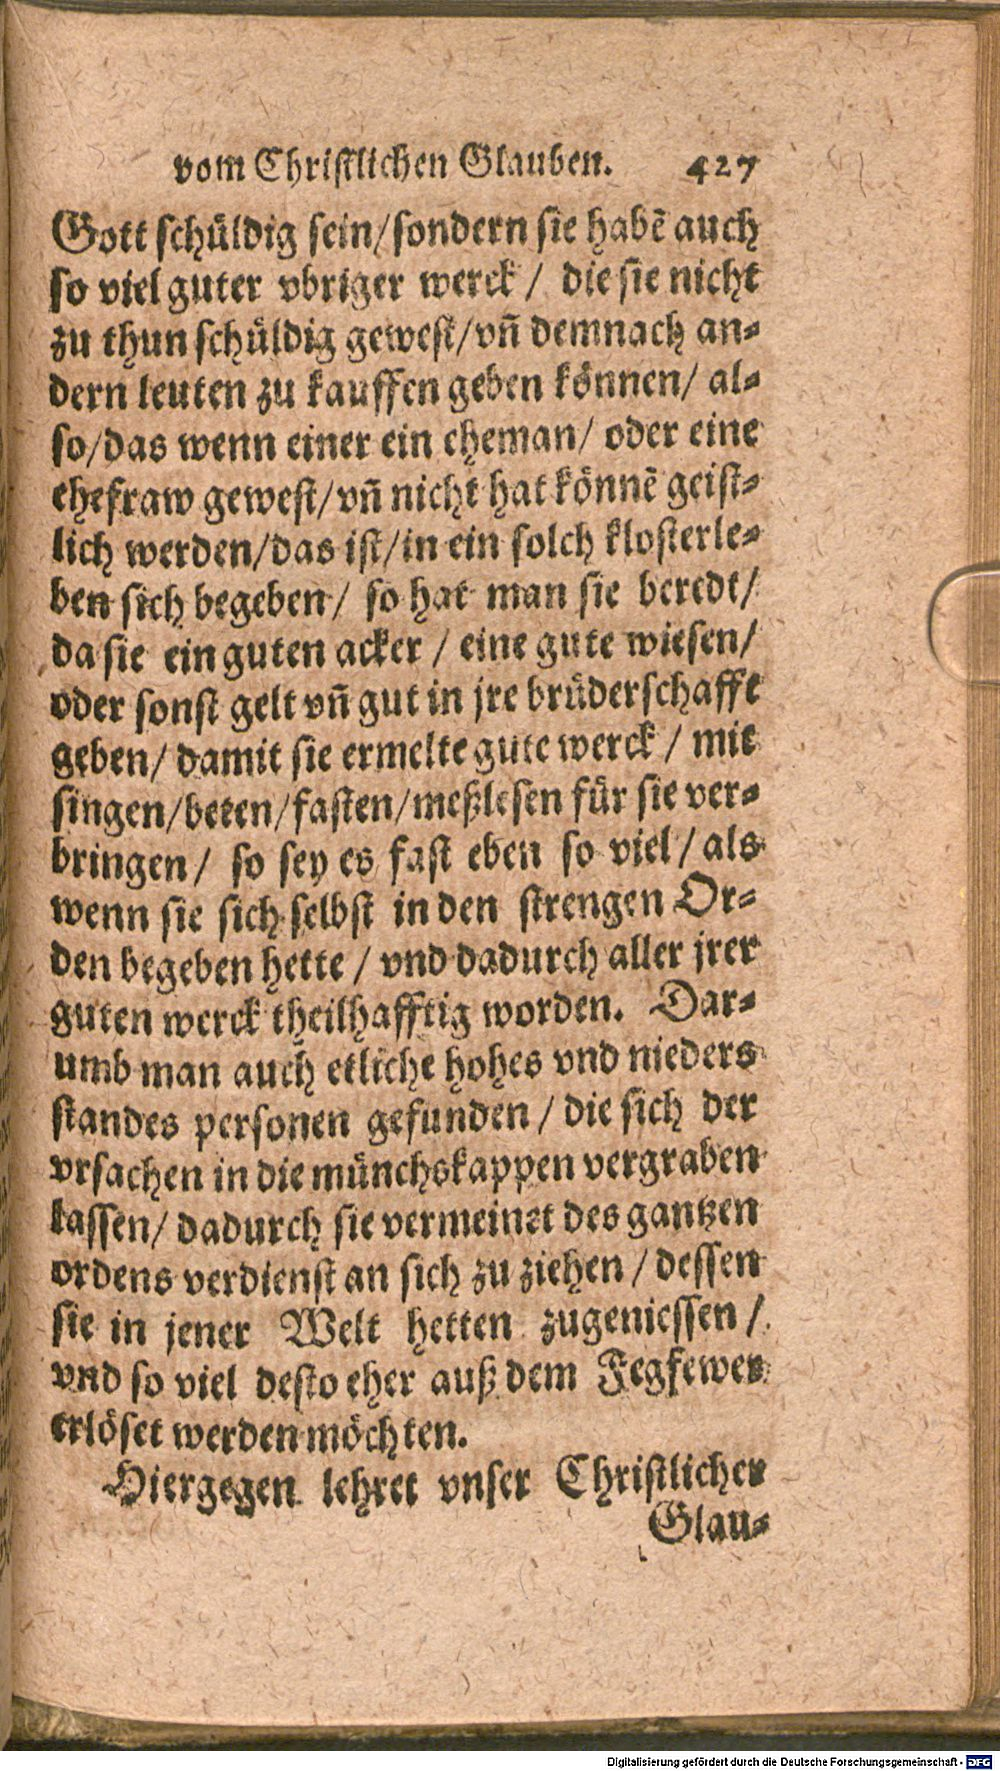 vom Christlichen Glauben. 427
Gott schüldig sein/sondern sie habẽ auch
so viel guter vbriger werck / die sie nicht
zu thun schüldig gewest/vñ demnach an-
dern leuten zu kauffen geben können/ al-
so/das wenn einer ein eheman/ oder eine
ehefraw gewest/vñ nicht hat könnẽ geist-
lich werden/das ist/in ein solch klosterle-
ben sich begeben/ so hat man sie beredt/
da sie ein guten acker / eine gute wiesen/
oder sonst gelt vñ gut in jre brüderschafft
geben/ damit sie ermelte gute werck / mit
singen/beten/fasten/meßlesen für sie ver-
bringen/ so sey es fast eben so viel/ als
wenn sie sich selbst in den strengen Or-
den begeben hette / vnd dadurch aller jrer
guten werck theilhafftig worden. Dar-
umb man auch etliche hohes vnd nieders
standes personen gefunden / die sich der
vrsachen in die münchskappen vergraben
lassen/ dadurch sie vermeinet des gantzen
ordens verdienst an sich zu ziehen / dessen
sie in jener Welt hetten zugeniessen /
vnd so viel desto eher auß dem Fegfewer
erlöset werden möchten.
Hiergegen lehret vnser Christlicher
Glau-
Digitalisierung gefördert durch die Deutsche Forschungsgemeinschaft - DFG